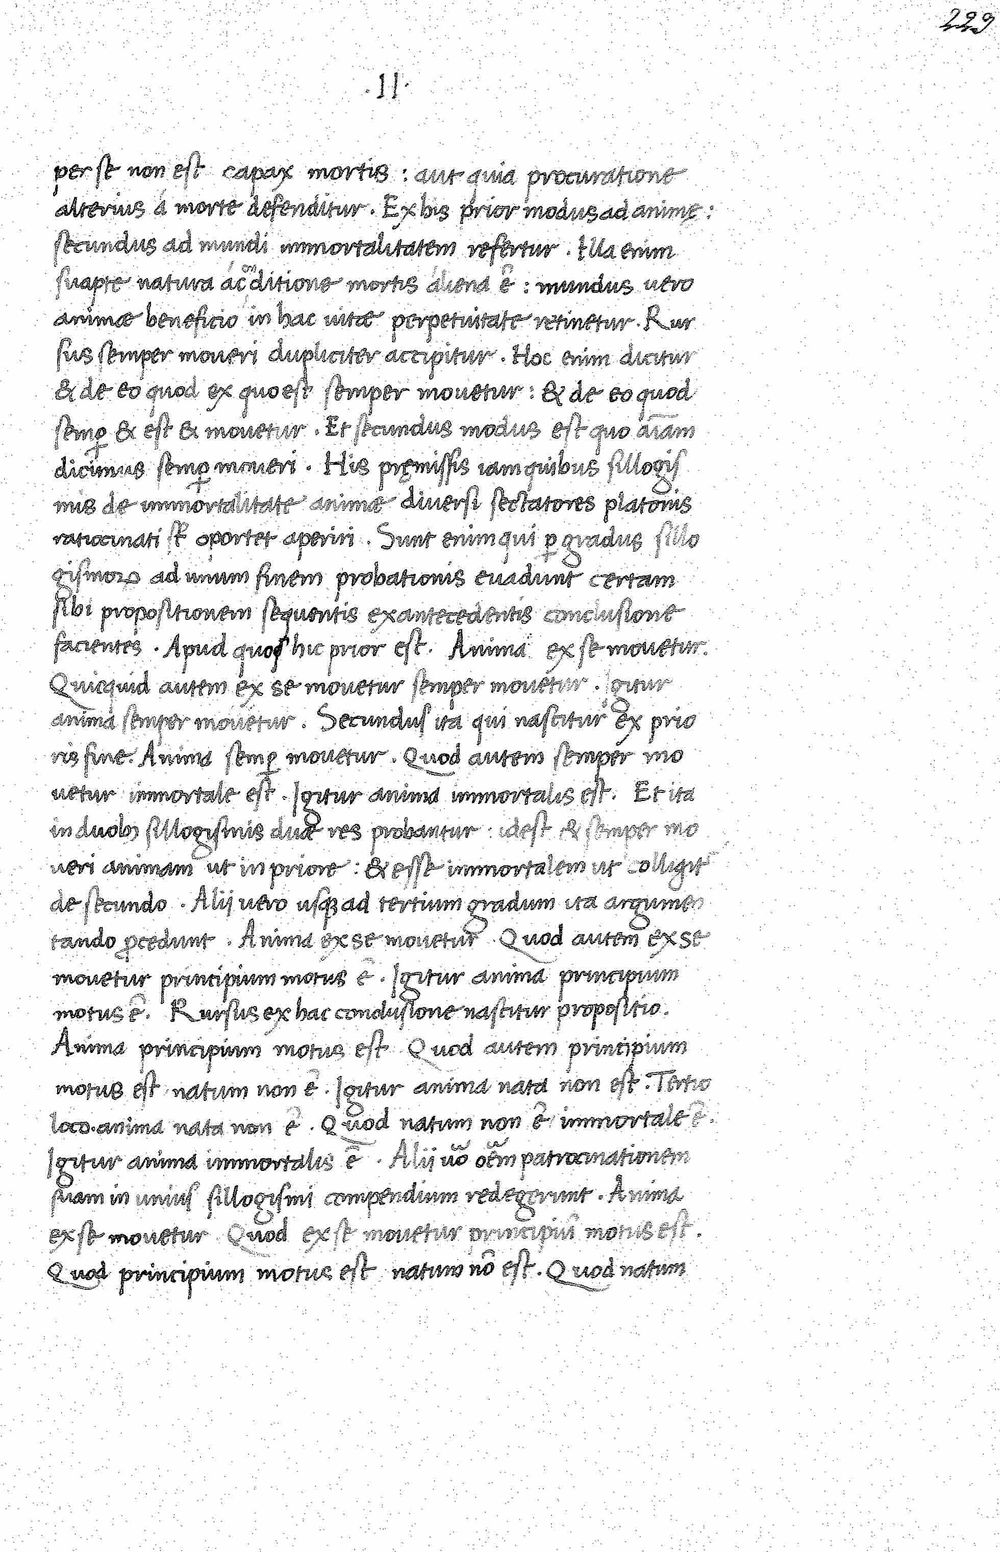 229
·II·
per se non est capax mortis : aut quia procuratione
alterius á morte defenditur. Ex his prior modus ad animę :
secundus ad mundi immortalitatem refertur. Illa enim
suapte natura á cõditione mortis aliena ē : mundus vero
animæ beneficio in hac uitæ perpetuitate retinetur. Rur
sus semper moueri dupliciter accipitur. Hoc enim dicitur
& de eo quod ex quo est semper mouetur : & de eo quod
semꝑ & est & mouetur. Et secundus modus est quo aīam
dicimus semꝑ moueri. His pręmissis iam quibus sillogis
mis de immortalitate animæ diversi sectatores platonis
ratiocinati oportet aperiri. Sunt enim qui ꝑ gradus sillo
gismoꝝ ad unum finem probationis euadunt certam
sibi propositionem sequentis ex antecedentis conclusione
facientes. Apud quos hic prior est. Anima ex se mouetur.
Quicquid autem ex se mouetur semper mouetur. Igitur
anima semper mouetur. Secundus ita qui nascitur ex prio
ris fine. Anima semꝑ mouetur. Quod autem semper mo
uetur immortale est. Igitur anima immortalis est. Et ita
in duobꝫ sillogismis duæ res probantur : idest & semper mo
ueri animam ut in priore : & esse immortalem ut colligit
de secundo. Alij vero usqꝫ ad tertium gradum ita argumen
tando ꝓcedunt. Anima ex se mouetur Quod autem ex se
mouetur principium motus ē. Igitur anima principium
motus ē. Rursus ex hac conclusione nascitur propositio.
Anima principium motus est Quod autem principium
motus est natum non ē. Igitur anima nata non est. Tertio
loco. anima nata non ē. Quod natum non ē immortale ē.
Igitur anima immortalis ē. Alij uō oēm patrocinationem
suam in unius sillogismi compendium redegerunt. Anima
ex se mouetur Quod ex se mouetur principiū motus est.
Quod principium motus est natum nō est. Quod natum